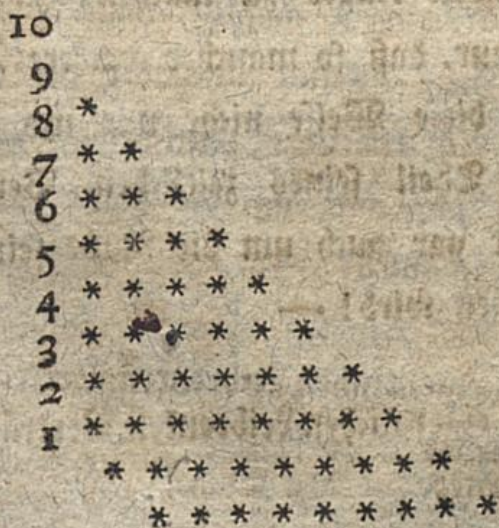 10
9
8 *
7 * *
6 * * *
5 * * * *
4 * * * * *
3 * * * * * *
2 * * * * * * *
1 * * * * * * * *
* * * * * * * * *
* * * * * * * * *